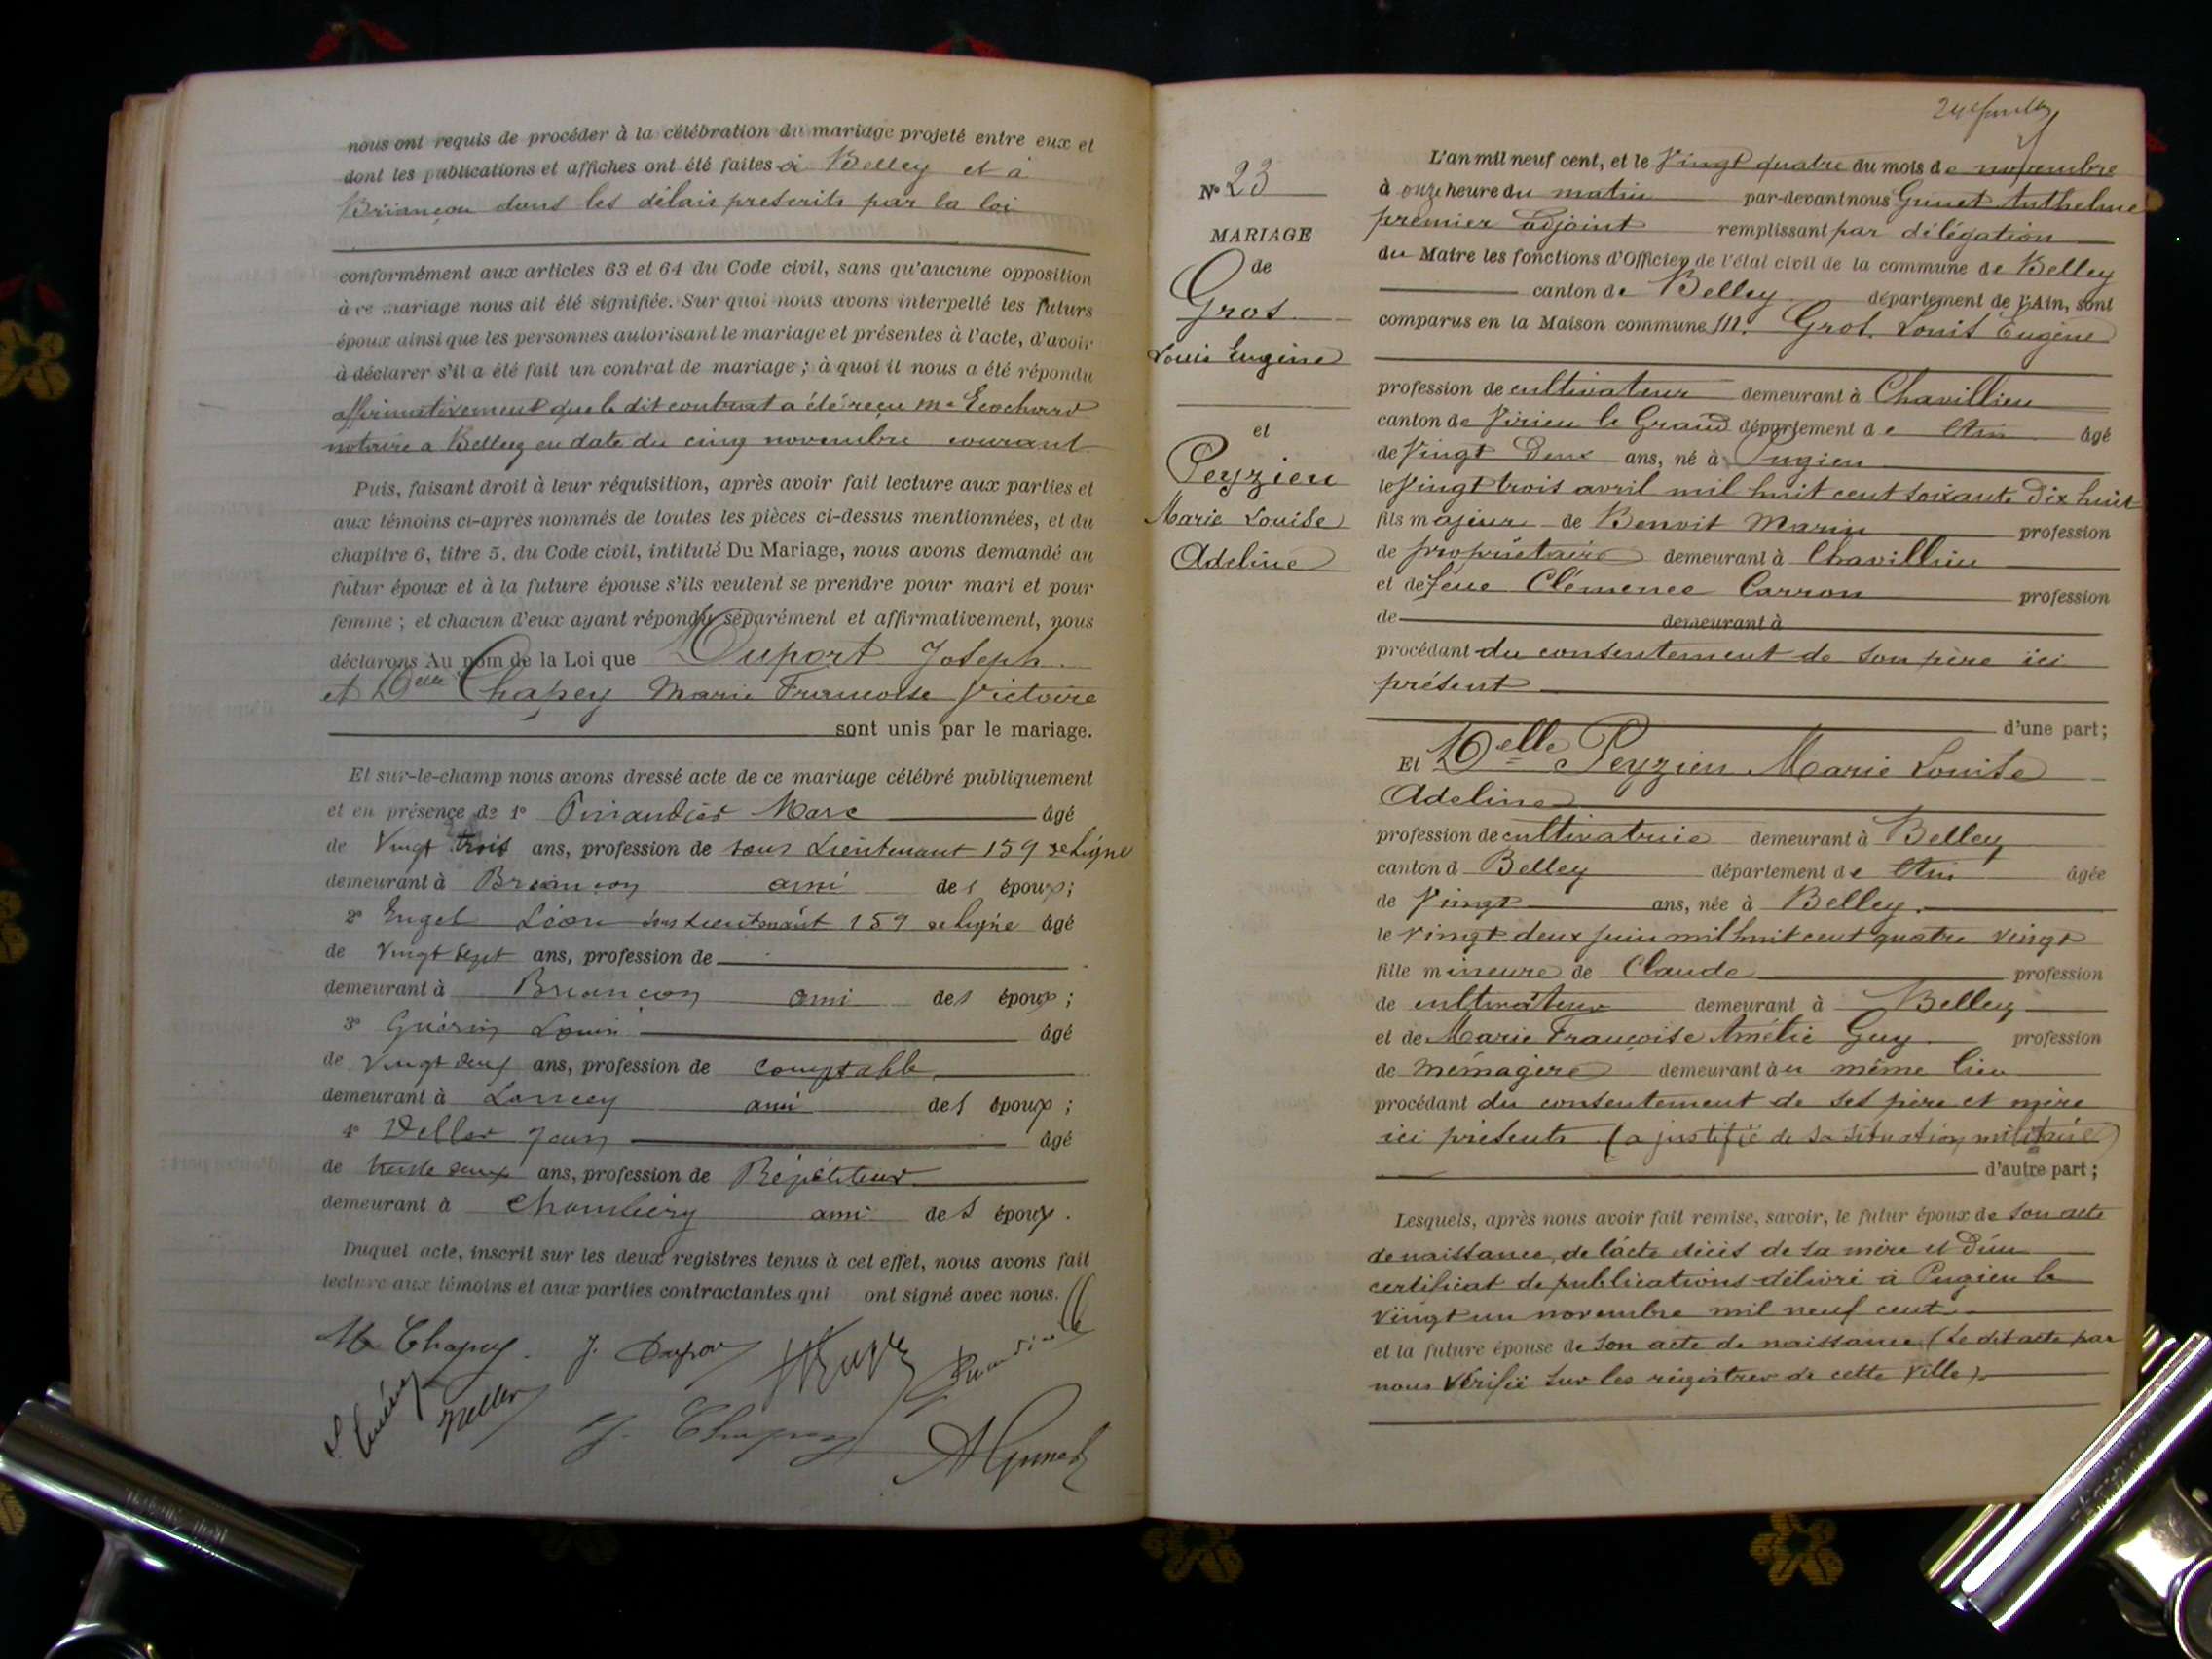 nous ont requis de procéder à la célébration du mariage projeté entre eux et
dont les publications et affiches ont été faites à Belley et à
Briançon dans les délais prescrits par la loi
conformément aux articles 63 et 64 du Code civil, sans qu'aucune opposition
à ce mariage nous ait été signifiée. Sur quoi nous avons interpellé les futurs
époux ainsi que les personnes autorisant le mariage et présentes à l'acte, d'avoir
à déclarer s'il a été fait un contrat de mariage ; à quoi il nous a été répondu
affirmativement que le dit contrat a été reçu Me Ecochard
notaire a Belley en date du cinq novembre courant
Puis, faisant droit à leur réquisition, après avoir fait lecture aux parties et
aux témoins ci-après nommés de toutes les pièces ci-dessus mentionnées, et du
chapitre 6, titre 5, du Code civil, intitulé Du Mariage, nous avons demandé au
futur époux et à la future épouse s'ils veulent se prendre pour mari et pour
femme ; et chacun d'eux ayant répondu séparément et affirmativement, nous
déclarons Au nom de la Loi que Duport Joseph
et Delle Chapey Marie Francoise Victoire
sont unis par le mariage.
Et sur-le-champ nous avons dressé acte de ce mariage célébré publiquement
et en présence de 1° Marc âgé
de Vingt trois ans, profession de sous Lieutenant 159 de Ligne
demeurant à Briançon ami des époux ;
2° Engel Léon sous Lieutenant 159 de ligne âgé
de Vingt sept ans, profession de
demeurant à Briançon ami des époux ;
3° Guérin Louis âgé
de Vingt deux ans, profession de Comptable
demeurant à Lancey ami des époux ;
4° Veller Jean âgé
de trente deux ans, profession de Répétiteur
demeurant à Chambéry ami des époux.
Duquel acte, inscrit sur les deux registres tenus à cet effet, nous avons fait
lecture aux témoins et aux parties contractantes qui ont signé avec nous.
M Chapey J. Duport
L. Guérin Veller J. Chapey AGunet
N° 23
MARIAGE
de
Gros
Louis Eugène
et
Peyzieu
Marie Louise
Adeline
L'an mil neuf cent, et le Vingt quatre du mois de novembre
à onze heure du matin par-devant nous Gunet Anthelme
premier adjoint remplissant par délégation
du Maire les fonctions d'Officier de l'état civil de la commune de Belley
canton de Belley département de l'Ain, sont
comparus en la Maison commune M. Gros Louis Eugène
profession de cultivateur demeurant à Chavillieu
canton de Virieu le Grand département de Ain âgé
de Vingt Deux ans, né à Pugieu
le Vingt trois avril mil huit cent soixante Dix huit
fils majeur de Benoit Marin profession
de propriétaire demeurant à Chavillieu
et de feue Clémence Carron profession
de demeurant à
procédant du consentement de son père ici
présent
d'une part ;
Et Delle Peyzieu Marie Louise
Adeline
profession de cultivatrice demeurant à Belley
canton d Belley département de Ain âgée
de Vingt ans, née à Belley.
le Vingt deux juin mil huit cent quatre vingt
fille mineure de Claude profession
de cultivateur demeurant à Belley
et de Marie Françoise Amélie Guy profession
de ménagère demeurant au même lieu
procédant du consentement de ses père et mère
ici présents (a justifié de sa situation militaire)
d'autre part ;
Lesquels, après nous avoir fait remise, savoir, le futur époux de son acte
de naissance, de l'acte décès de sa mère et d'un
certificat de publications délivré à Pugieu le
Vingt un novembre mil neuf cent
et la future épouse de son acte de naissance (Le dit acte par
nous Vérifié sur les régistres de cette Ville).